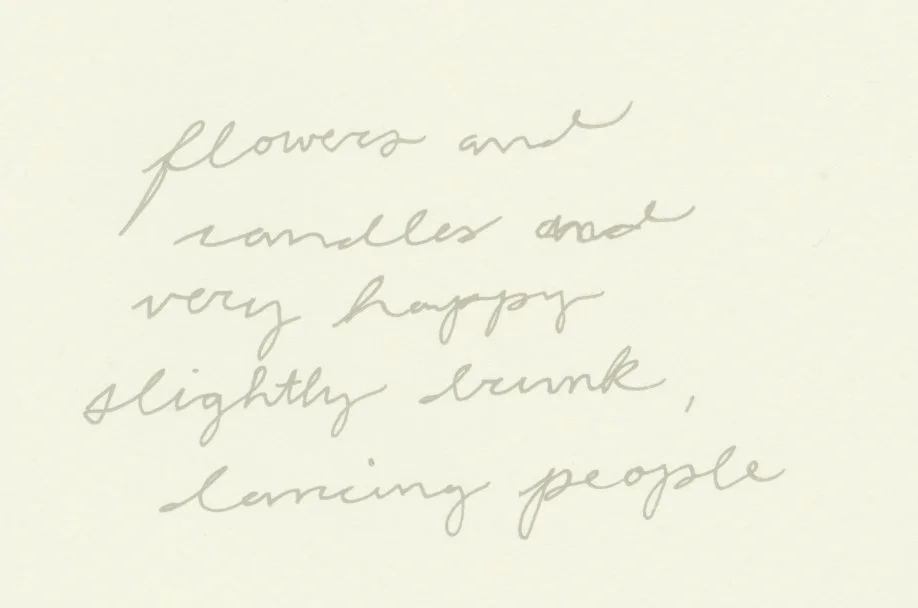 flowers and
candles and
very happy
slightly drunk,
dancing people